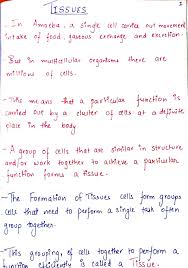 TISSUES
- In Amoeba, a single cell carries out movement
intake of food, gaseous exchange and excretion.
- But in multicellular organisms there are
millions of cells.
- This means that a particular function is
carried out by a cluster of cells at a definite
place in the body
- A group of cells that are similar in structure
and/or work together to achieve a particular
function forms a tissue.
- The Formation of Tissues cells form groups
cells that need to perform a single task often
group together.
- This grouping, of cells together to perform a
function efficiently is called a Tissue.